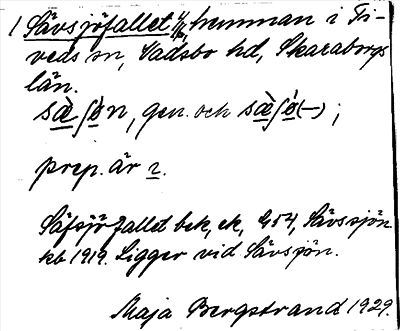 1 Sävsjöfallet 1/4, hemman i Ti-
veds sn, Vadsbo hd, Skaraborgs
län.
sæ̀ʃòn, gen. och sæ̀ʃò(-);
prep. är 2.
Säfsjö fallet bek, ek, G54, Sävssjön
kb 1919. Ligger vid Sävsjön.
Maja Bergstrand 1929.